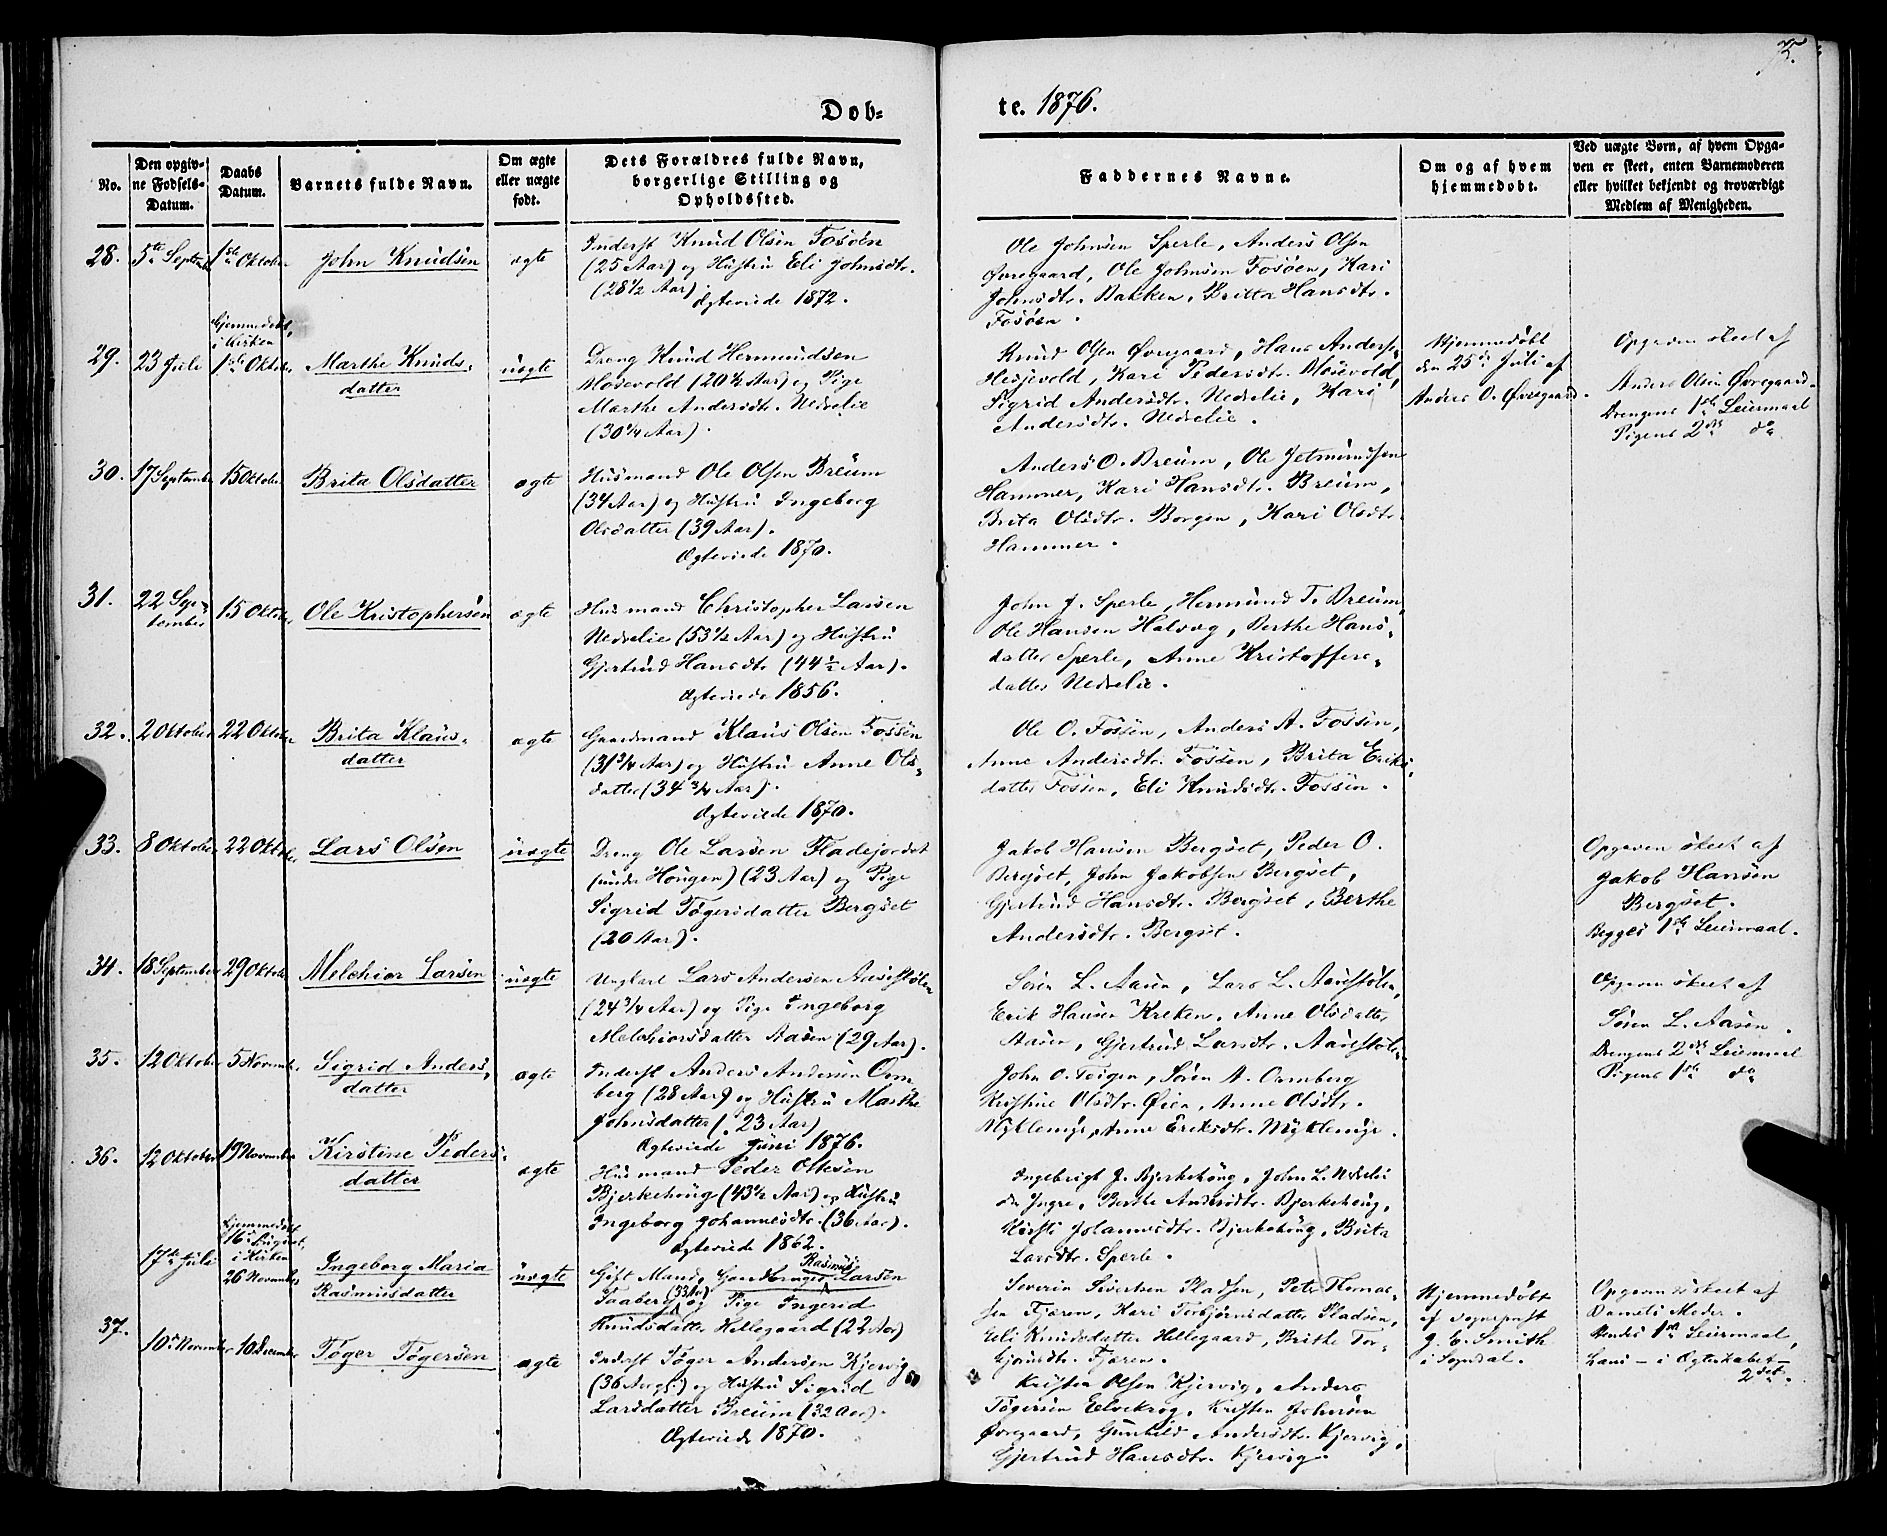 75.
Dob=
te. 1876.
No.
Den opgiv=
ne Fødsels=
Datum.
Daabs
Datum.
Barnets fulde Navn.
Om ægte
eller uægte
født.
Dets Forældres fulde Navn,
borgerlige Stilling og
Opholdssted.
Faddernes Navne.
Om og af hvem
hjemmedøbt.
Ved uægte Børn, af hvem Opga=
ven er skeet, enten Barnemoderen
eller hvilket bekjendt og troværdigt
Medlem af Menigheden.
28.
5te Septembr
1ste Oktober
John Knudsen
ægte
Inderst Knud Olsen Fosøen
(25 Aar) og Hustru Eli Johnsdtr.
(28 1/2 Aar)
Ægteviede 1872.
Ole Johnsen Sperle, Anders Olsen
Øvregaard, Ole Johnsen Fosøen, Kari
Johnsdtr. Bakken, Britta Hansdtr.
Fosøen.
29.
23 Juli
Hjemmedøbt,
i Kirken
1ste Oktober
Marthe Knuds-
datter
uægte
Dreng Knud Hermundsen
Mosevold (20 1/2 Aar) og Pige
Marthe Andersdtr. Nedrelie
(30 1/4 Aar).
Knud Olsen Øvregaard, Hans Anderse-
Hesjevold, Kari Pedersdtr. Mosevold,
Sigrid Andersdtr. Nedrelie, Kari
Andersdtr. Nedrelie.
Hjemmedøbt
den 25de Juli af
Anders O. Øvregaard.
Opgaven skeet af
Anders Olsen Øvregaard.
Drengens 1ste Leiermaal
Pigens 2det do
30.
17 September
15 Oktober
Brita Olsdatter
ægte
Husmand Ole Olsen Breum
(34 Aar) og Hustru Ingeborg
Olsdatter (39 Aar).
Ægteviede 1870.
Anders O. Breum, Ole Jetmundsen
Hammer, Kari Hansdtr. Breum,
Brita Olsdtr. Borgen, Kari Olsdtr.
Hammer.
31.
22 Sep-
tember
15 Oktober
Ole Kristophersen
ægte
Husmand Christopher Larsen
Nedrelie (53 1/2 Aar) og Hustru
Gjertrud Hansdtr (44 1/2 Aar).
Ægteviede 1856.
John J. Sperle, Hermund T. Breum,
Ole Hansen Halvæg, Berthe Hans-
datter Sperle, Anne Kristoffers-
datter Nedrelie.
32.
2 Oktober
22 Oktober
Brita Klaus-
datter
ægte
Gaardmand Klaus Olsen Fossen
(31 3/4 Aar) og Hustru Anne Ols-
datter (34 3/4 Aar).
Ægteviede 1870.
Ole O. Fossen, Anders A. Fossen,
Anne Andersdtr. Fossen, Brita Eriks-
datter Fossen, Eli Knudsdtr. Fossen.
33.
8 Oktober
22 Oktober
Lars Olsen
uægte
Dreng Ole Larsen Fladejordet
(under Hougen) (23 Aar) og Pige
Sigrid Tøgersdatter Bergset
(20 Aar).
Jakob Hansen Bergset, Peder O.
Bergset, John Jakobsen Bergset,
Gjertrud Hansdtr. Bergset, Berthe
Andersdtr. Bergset.
Opgaven skeet af
Jakob Hansen
Bergset.
Begges 1ste Leiermaal.
34.
18 September
29 Oktober
Melchior Larsen
uægte
Ungkarl Lars Andersen Aarestølen
(24 3/4 Aar) og Pige Ingeborg
Melchiorsdatter Aasen (29 Aar).
Søren L. Aasen, Lars L. Aarestølen,
Erik Hansen Kreken, Anne Olsdatter
Aasen, Gjertrud Larsdtr. Aarestølen
Opgaven skeet af
Søren L. Aasen.
Drengens 2det Leiermaal
Pigens 1ste do
35.
12 Oktober
5 November
Sigrid Anders-
datter
ægte
Inderst Anders Andersen Orm
berg (28 Aar) og Hustru Marthe
Johnsdatter (23 Aar)
Ægteviede Juni 1876.
John O. Teigen, Søren A. Ormberg
Kristine Olsdtr. Øien, Anne Olsdtr.
Myklemyr, Anne Eriksdtr. Myklemyr.
36.
12 Oktober
19 November
Kirstine Peders-
datter
ægte
Husmand Peder Ottesen
Bjerkehoug (43 1/2 Aar) og Hustru
Ingeborg Johannesdtr. (36 Aar).
Ægteviede 1862.
Ingebrigt J. Bjerkehoug, John L. Nedrelie
den Yngre, Berthe Andersdtr. Bjerkehoug,
Kirsti Johannesdtr. Bjerkehoug, Brita
Larsdtr. Sperle.
17de Juli
Hjemmedøbt
16de August,
i Kirken
26 November
Ingeborg Maria
Rasmusdatter
uægte
Gift Mand, Gaardbruger Rasmus Larsen
Taaberg (33 Aar) og Pige Ingerid
Knudsdatter Hillegaard (22 Aar)
Severin Sivertsen Pladsen, Peter Thomas-
sen Fjæren, Kari Torbjørnsdatter Pladsen,
Eli Knudsdatter Hillegaard, Brithe Tor-
Fjæren.
Hjemmedøbt
af Sognepræst
J. C. Smith
i Sogndal.
Opgaven skeet af
Barnets Moder.
Hendes 1ste Leiermaal,
hans – i Ægteskabet –
2det.
37.
10de November
10 December
Tøger Tøgersen
ægte
Inderst Tøger Andersen Kjervig
(36 Aar) og Hustru Sigrid
Larsdatter Breum (32 Aar).
Ægteviede 1870.
Kristen Olsen Kjervig, Anders
Tøgersen Elvekrog, Kristen Johnsen
Øvregaard, Gunhild Andersdtr. Kjervig,
Gjertrud Hansdtr. Kjervig.